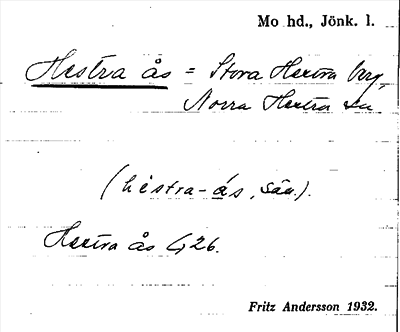 Mo hd., Jönk. l.
Hestra ås = Stora Hestra berg,
Norra Hestra
(hèstra-ás, sân.).
Hestra ås G, 26.
Fritz Andersson 1932.